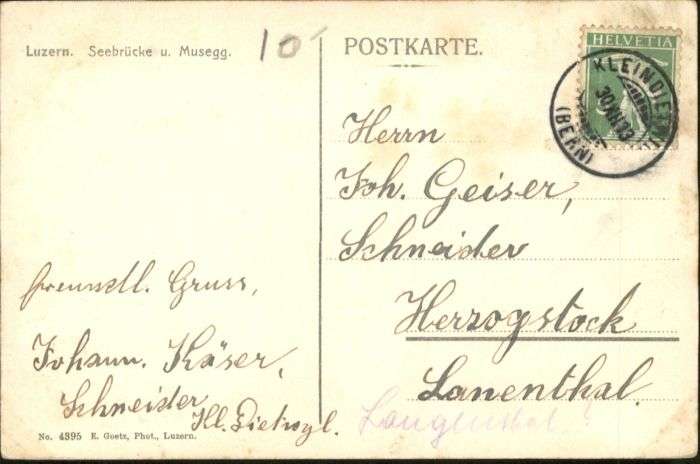 Luzern. Seebrücke u. Musegg.
10
POSTKARTE.
HELVETIA
KLEINDIETWIL
(BERN)
Herrn
Joh. Geiser,
Schneider
Herzogstock
Lanenthal.
Langenthal?
freundl. Gruss,
Johann. Käser,
Schneider
Kl. Dietwyl.
No. 4395 E. Goetz, Phot., Luzern.